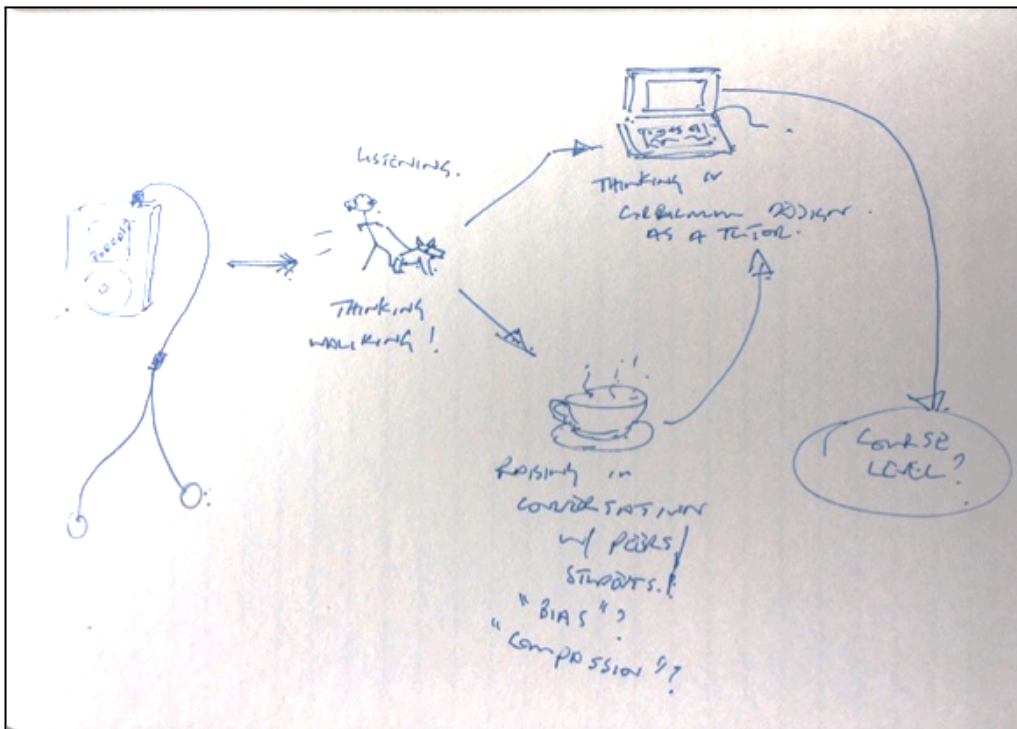 PODCAST
LISTENING.
THINKING
WALKING!
THINKING IN
CURRICULUM DESIGN
AS A TUTOR.
RAISING IN
CONVERSATION
W/ PEERS/
STUDENTS.
"BIAS"?
"COMPASSION"?
COURSE
LEVEL?